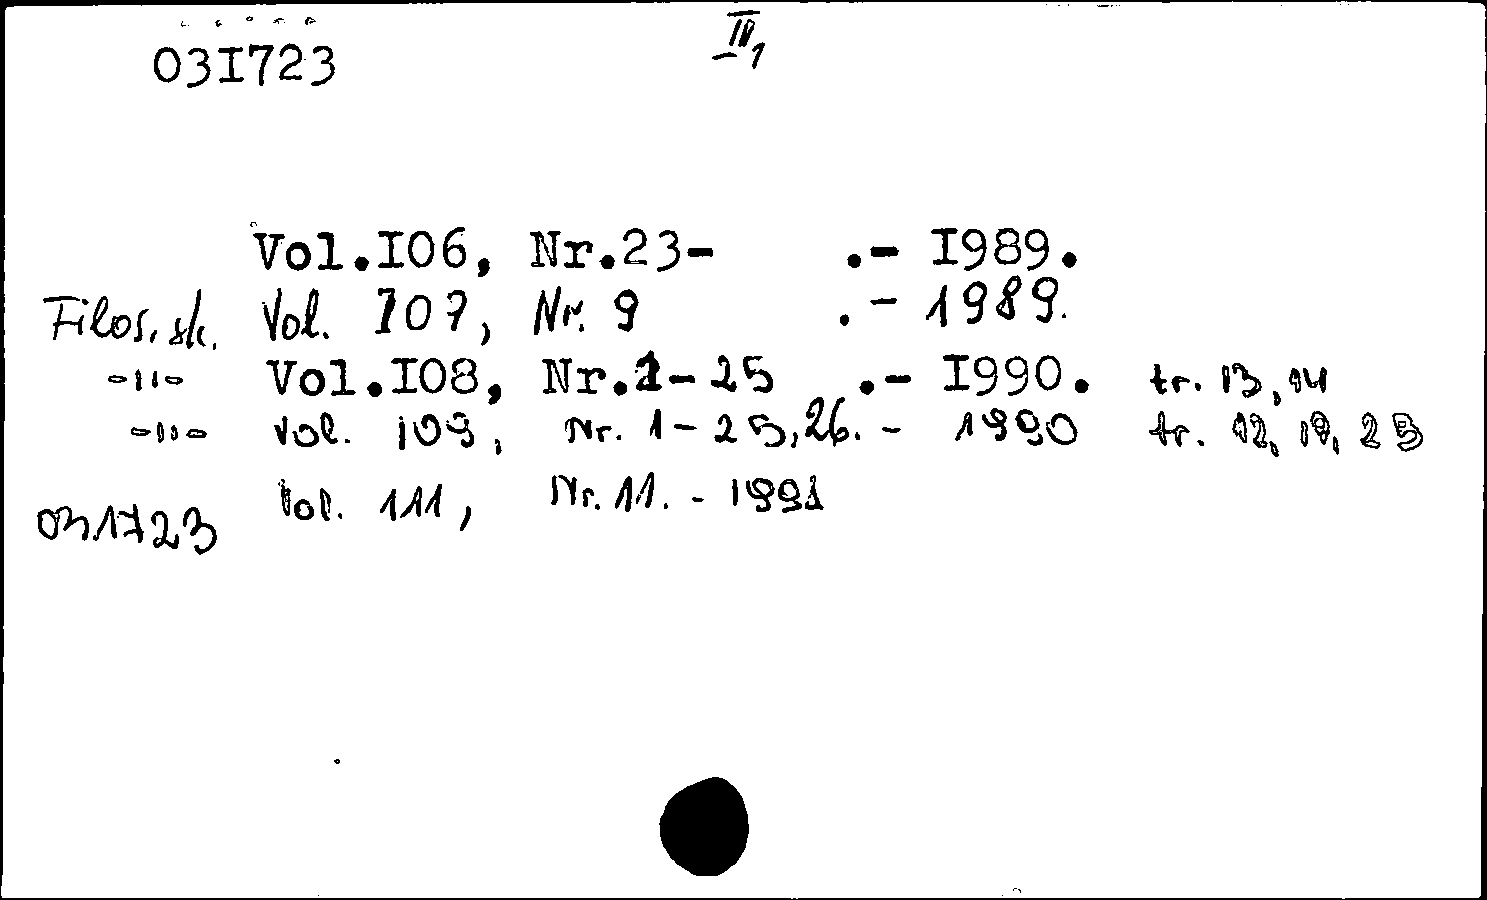 IV,1
03I723
Vol.I06, Nr.23- .- I989.
Filos. sk. Vol. 107, Nr. 9 .- 1989.
-"- Vol.I08, Nr.1-25 .- I990. tr. 13, 14
-"- Vol. 109, Nr. 1-25,26. - 1990 tr. 12, 19, 23
031723 Vol. 111, Nr. 11. - 1991